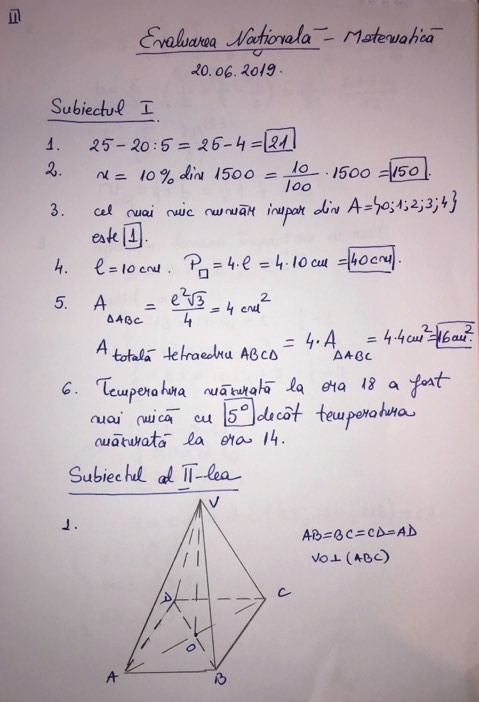 II
Evaluarea Națională – Matematică
20.06.2019.
Subiectul I.
1. 25 - 20:5 = 25 - 4 = 21
2. x = 10% din 1500 = 10/100 · 1500 = 150.
3. cel mai mic număr impar din A={0;1;2;3;4}
este 1.
4. l = 10 cm. P□ = 4·l = 4·10 cm = 40 cm.
5. A ΔABC = l²√3/4 = 4 cm²
A totală tetraedru ABCD = 4·A ΔABC = 4·4cm² = 16cm².
6. Temperatura măsurată la ora 18 a fost
mai mică cu 5° decât temperatura
măsurată la ora 14.
Subiectul al II-lea
1.
V
AB=BC=CD=AD
VO⊥(ABC)
D
C
O
A
B